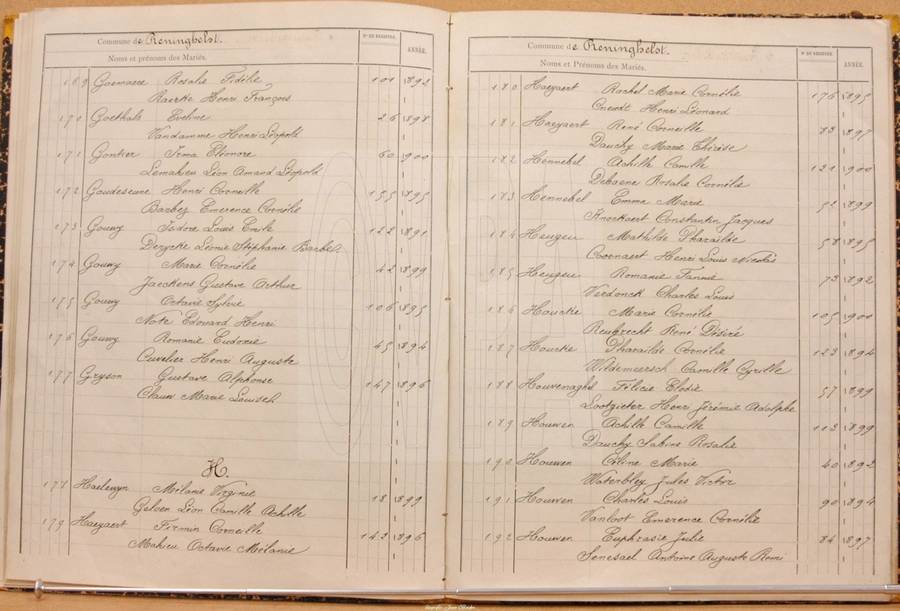 Commune de Reninghelst.
Noms et prénoms des Mariés.
N° DU REGISTRE
ANNÉE.
169 Goemaere Rosalie Fidélie 101 1892
Baerke Henri François
170 Goethals Eveline 26 1898
Vandamme Henri Léopold
171 Gontier Irma Eléonore 60 1900
Lemahieu Léon Amand Léopold
172 Goudeseune Henri Corneille 155 1895
Barbez Emerence Cornélie
173 Gouwy Isidore Louis Emile 122 1891
Derycke Léonie Stéphanie Barbe
174 Gouwy Marie Cornélie 42 1899
Jaeckens Gustave Arthur
175 Gouwy Octavie Sylvie 106 1895
Note Edouard Henri
176 Gouwy Romanie Eudoxie 45 1894
Cuvelier Henri Auguste
177 Gryson Gustave Alphonse 147 1896
Claus Marie Louise
H
178 Haelewyn Mélanie Virginie 18 1899
Geloen Léon Camille Achille
179 Haeyaert Firmin Corneille 143 1896
Mahieu Octavie Mélanie
Commune de Reninghelst.
Noms et Prénoms des Mariés.
N° DU REGISTRE
ANNÉE.
180 Haeyaert Rachel Marie Cornélie 176 1895
Henri Léonard
181 Haeyaert René Corneille 83 1897
Dauchy Marie Thérèse
182 Hennebel Achille Camille 121 1900
Debaene Rosalie Cornélie
183 Hennebel Emma Marie 52 1899
Knockaert Constantin Jacques
184 Heugeu Mathilde Pharaïlde 58 1895
Coornaert Henri Louis Nicolas
185 Heugeu Romanie Fannie 73 1892
Verdonck Charles Louis
186 Houcke Marie Cornélie 105 1900
Reubrecht René Désiré
187 Hourke Pharaïlde Cornélie 123 1894
Wildemeersch Camille Cyrille
188 Houvenaghel Félicie Elodie 57 1899
Lootgieter Henri Jérémie Adolphe
189 Houwen Achille Camille 113 1899
Dauchy Sabine Rosalie
190 Houwen Céline Marie 40 1892
Waterbley Jules Victor
191 Houwen Charles Louis 90 1894
Vanloot Emerence Cornélie
192 Houwen Euphrasie Julie 84 1897
Senesael Antoine Auguste Remi